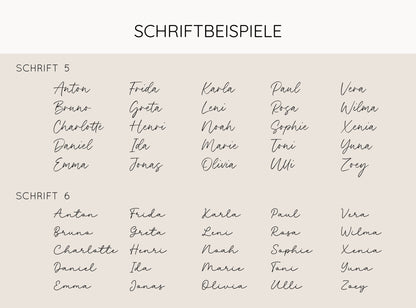 SCHRIFTBEISPIELE
SCHRIFT 5
Anton Frida Karla Paul Vera
Bruno Greta Leni Rosa Wilma
Charlotte Henri Noah Sophie Xenia
Daniel Ida Marie Toni Yuna
Emma Jonas Olivia Ulli Zoey
SCHRIFT 6
Anton Frida Karla Paul Vera
Bruno Greta Leni Rosa Wilma
Charlotte Henri Noah Sophie Xenia
Daniel Ida Marie Toni Yuna
Emma Jonas Olivia Ulli Zoey